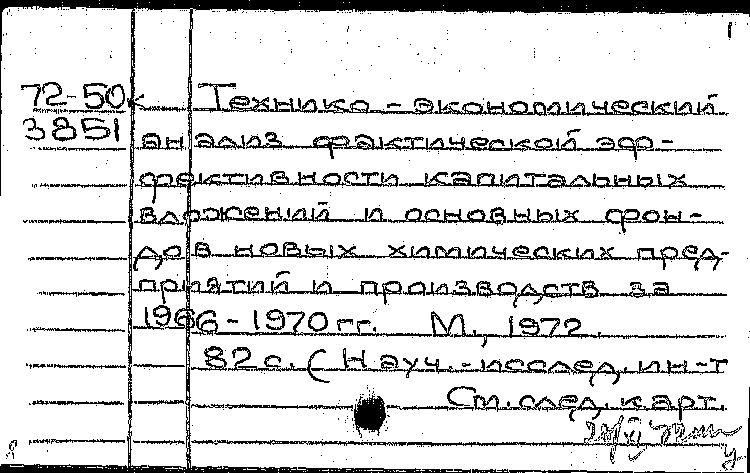 1
72-50к Технико-экономический
3851 анализ фактической эф-
фективности капитальных
вложений и основных фон-
дов новых химических пред-
приятий и производств за
1966-1970 гг. М., 1972.
82 с. (Науч.-исслед. ин-т
См. след. карт.